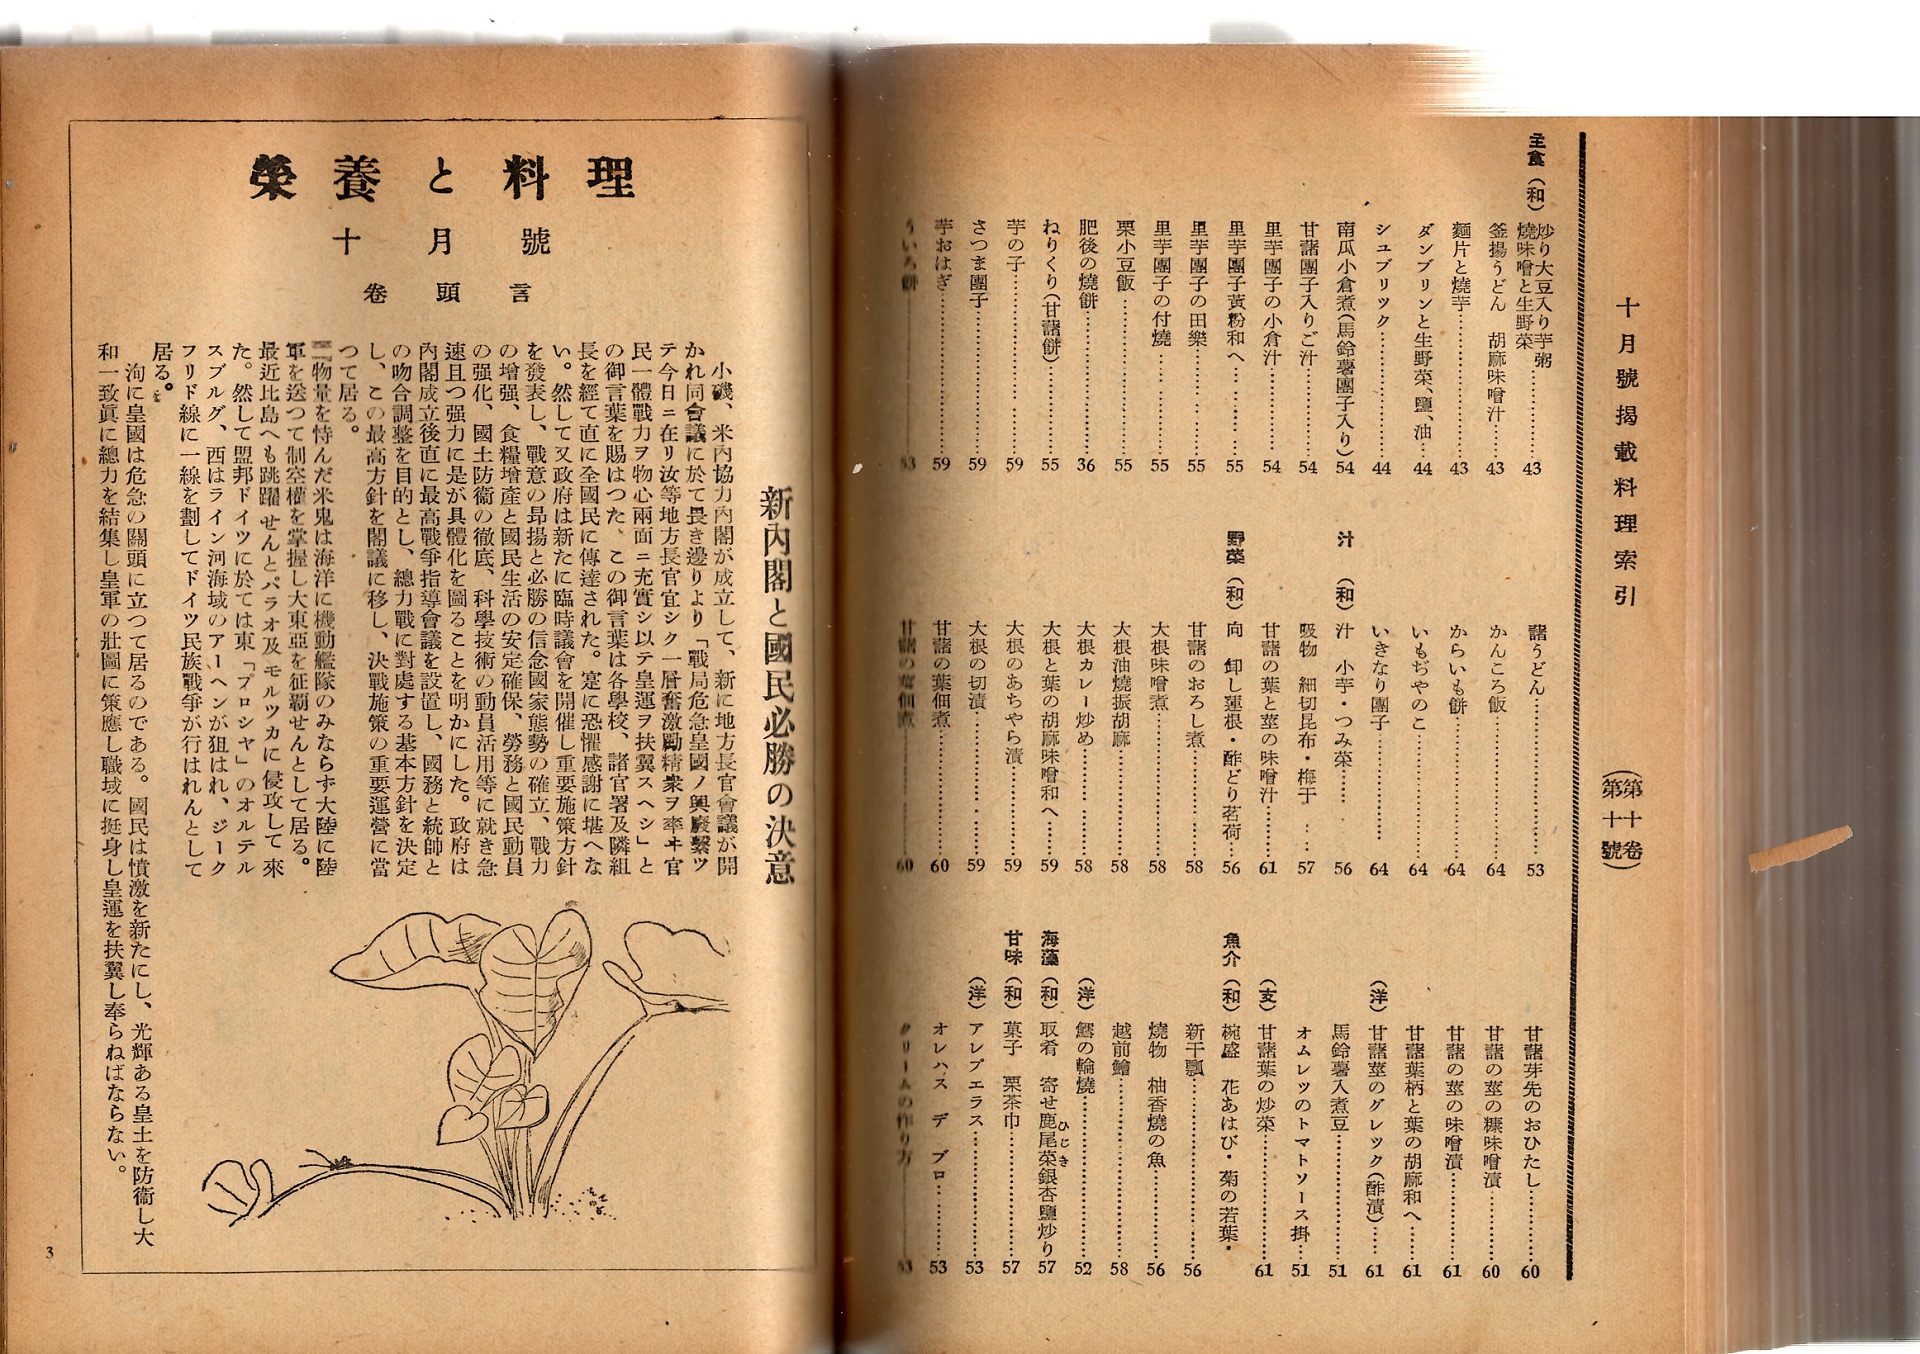 十月號揭載料理索引
(第十卷
第十號)
主食(和)
炒り大豆入り芋粥
燒味噌と生野菜……43
釜揚うどん 胡麻味噌汁……43
麵片と燒芋……43
ダンブリンと生野菜、鹽、油……44
シユブリツク……44
南瓜小倉煮(馬鈴薯團子入り)54
甘藷團子入りご汁……54
里芋團子の小倉汁……54
里芋團子黃粉和へ……55
里芋團子の田樂……55
里芋團子の付燒……55
栗小豆飯……55
肥後の燒餅……36
ねりくり(甘藷餅)……55
芋の子……59
さつま團子……59
芋おはぎ……59
ういろ餅……53
藷うどん……53
かんころ飯……64
からいも餅……64
いもぢやのこ……64
いきなり團子……64
汁 (和) 汁 小芋・つみ菜……56
吸物 細切昆布・梅干……57
甘藷の葉と莖の味噌汁……61
野菜(和) 向 卸し蓮根・酢どり茗荷…56
甘藷のおろし煮……58
大根味噌煮……58
大根油燒振胡麻……58
大根カレー炒め……58
大根と葉の胡麻味噌和へ……59
大根のあちやら漬……59
大根の切漬……59
甘藷の葉佃煮……60
甘藷の莖佃煮……60
甘藷芽先のおひたし……60
甘藷の莖の糠味噌漬……60
甘藷の莖の味噌漬……61
甘藷葉柄と葉の胡麻和へ……61
(洋) 甘藷莖のグレツク(酢漬)……61
馬鈴薯入煮豆……51
オムレツのトマトソース掛……51
(支) 甘藷葉の炒菜……61
魚介(和) 椀盛 花あはび・菊の若葉・
新干瓢……56
燒物 柚香燒の魚……56
越前鱠……58
(洋) 鱈の輪燒……52
海藻(和) 取肴 寄せ鹿尾菜銀杏鹽炒り57
ひじき
甘味(和) 菓子 栗茶巾……57
(洋) アレプエラス……53
オレハス デ ブロ……53
クリームの作り方……53
榮養と料理
十月號
卷頭言
新內閣と國民必勝の決意
小磯、米內協力內閣が成立して、新に地方長官會議が開
かれ同會議に於て畏き邊りより「戰局危急皇國ノ興廢繫ツ
テ今日ニ在リ汝等地方長官宜シク一層奮激勵精衆ヲ率ヰ官
民一體戰力ヲ物心兩面ニ充實シ以テ皇運ヲ扶翼スヘシ」と
の御言葉を賜はつた。この御言葉は各學校、諸官署及隣組
長を經て直に全國民に傳達された。寔に恐懼感謝に堪へな
い。然して又政府は新たに臨時議會を開催し重要施策方針
を發表し、戰意の昂揚と必勝の信念國家態勢の確立、戰力
の增强、食糧增產と國民生活の安定確保、勞務と國民動員
の强化、國土防衞の徹底、科學技術の動員活用等に就き急
速且つ强力に是が具體化を圖ることを明かにした。政府は
內閣成立後直に最高戰爭指導會議を設置し、國務と統帥と
の吻合調整を目的とし、總力戰に對處する基本方針を決定
し、この最高方針を閣議に移し、決戰施策の重要運營に當
つて居る。
物量を恃んだ米鬼は海洋に機動艦隊のみならず大陸に陸
軍を送つて制空權を掌握し大東亞を征覇せんとして居る。
最近比島へも跳躍せんとパラオ及モルツカに侵攻して來
た。然して盟邦ドイツに於ては東「プロシヤ」のオルテル
スブルグ、西はライン河海域のアーヘンが狙はれ、ジーク
フリド線に一線を劃してドイツ民族戰爭が行はれんとして
居る。
洵に皇國は危急の關頭に立つて居るのである。國民は憤激を新たにし、光輝ある皇土を防衞し大
和一致眞に總力を結集し皇軍の壯圖に策應し職域に挺身し皇運を扶翼し奉らねばならない。
3